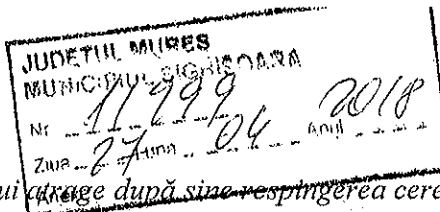 JUDEȚUL MUREȘ
MUNICIPIUL SIGHIȘOARA
Nr 11999
Ziua 27 Luna 04 Anul 2018
ui atrage după sine respingerea cere